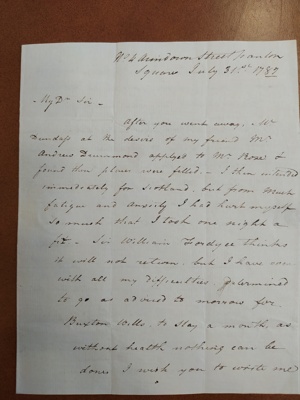 No 4 Arundown Street Panton
Square July 31st 1787
My Dr Sir
After you went away. Mr
Dundass at the desire of my friend Mr
Andrew Drummond applyed to Mr Rose &
found these places were filled. I then intended
immediately for Scotland, but from much
fatigue and Anxiety I had hurt myself
so much that I took one night a
fit - Sir William Fordyce thinks
it will not return. but I have now
with all my difficulties determined
to go as advised to morrow for
Buxton Wells to stay a month, as
without health nothing can be
done. I wish you to write me